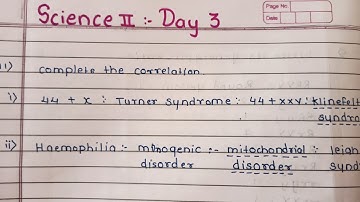 Science II :- Day 3
Page No:
Date
1) Complete the correlation.
i) 44 + x : Turner syndrome : 44 + xxy : klinefelt
syndro
ii) Haemophilia :- monogenic :- mitochondrial : leigh
disorder disorder synd